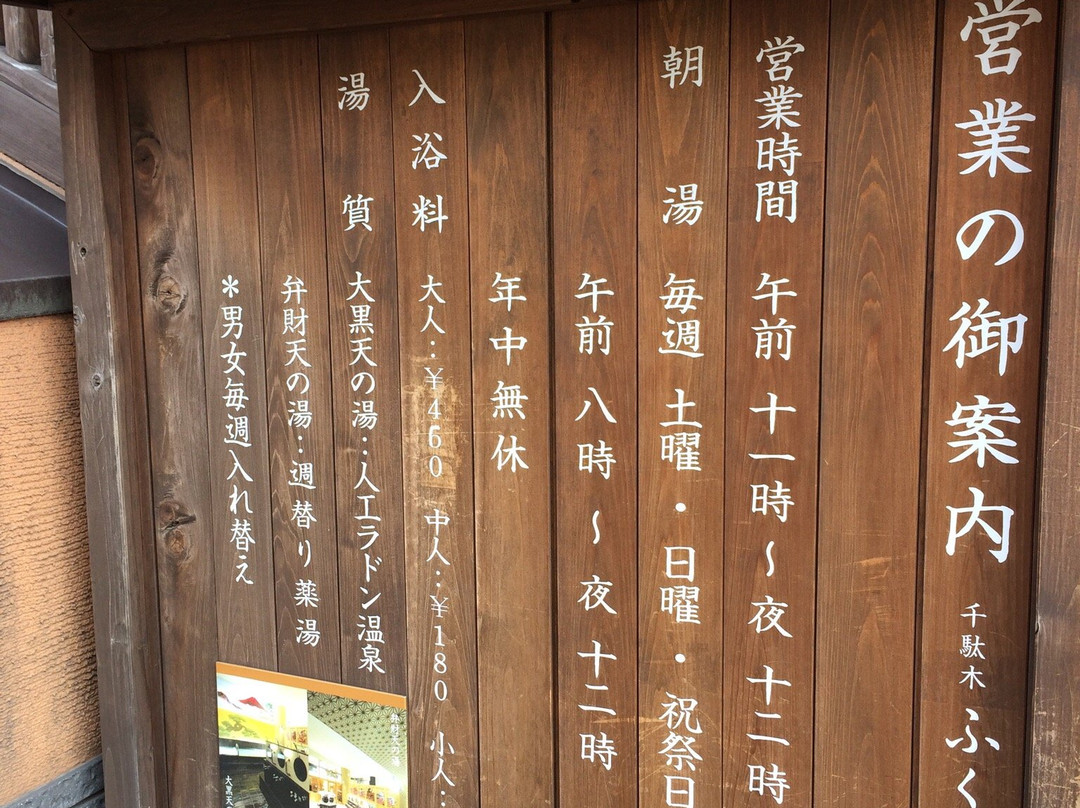 営業の御案内 千駄木ふく
営業時間 午前 十一時～夜 十二時
朝湯 毎週 土曜・日曜・祝祭日
午前 八時 ～ 夜 十二時
年中無休
入浴料 大人：￥460 中人：￥180 小人：
湯質 大黒天の湯：人工ラドン温泉
弁財天の湯：週替り薬湯
＊男女毎週入れ替え
弁財天の湯
大黒天